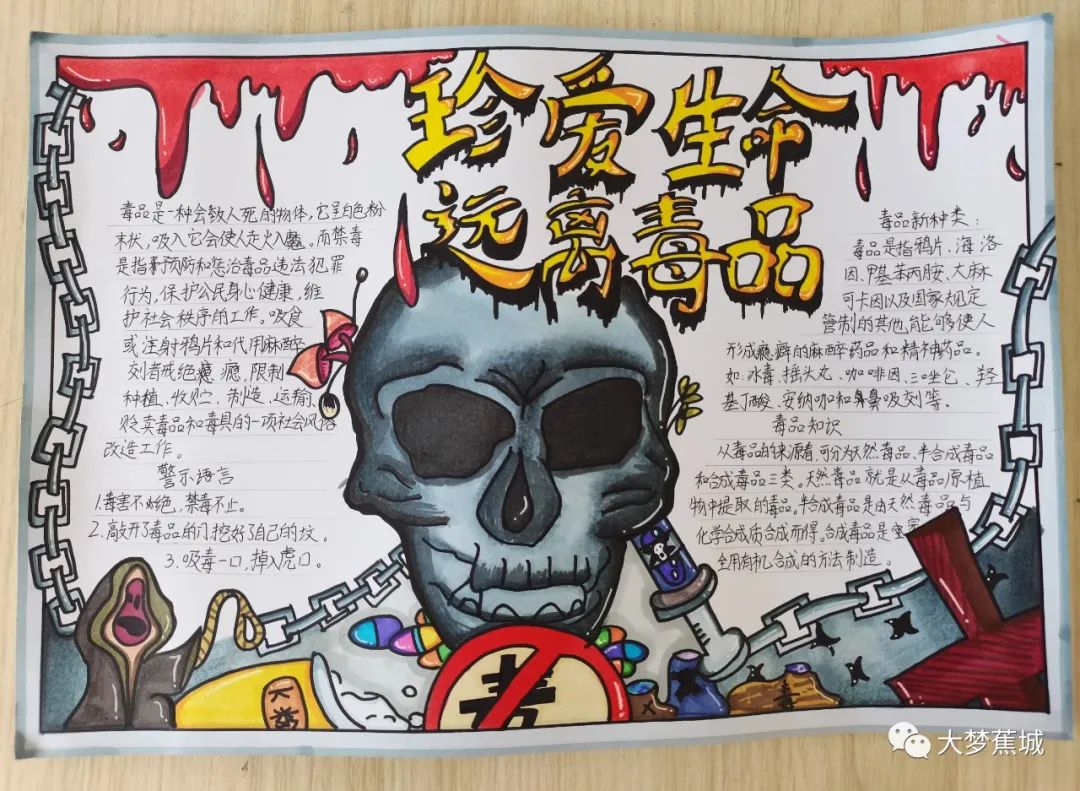 珍爱生命
远离毒品
毒品是一种会致人死的物体,它呈白色粉
末状,吸入它会使人走火入魔。而禁毒
是指预防和惩治毒品违法犯罪
行为,保护公民身心健康,维
护社会秩序的工作。吸食
或注射鸦片和代用麻醉
剂者戒绝瘾,限制
种植、收贮、制造、运输、
贩卖毒品和毒具的一项社会风俗
改造工作。
警示语言
1.毒害不灭绝,禁毒不止。
2.敲开了毒品的门挖好了自己的坟。
3.吸毒一口,掉入虎口。
毒品新种类:
毒品是指鸦片、海洛
因、甲基苯丙胺、大麻
可卡因以及国家规定
管制的其他能够使人
形成瘾癖的麻醉药品和精神药品。
如:冰毒、摇头丸、咖啡因、三唑仑、羟
基丁酸、安纳咖和鼻吸剂等。
毒品知识
从毒品的来源看,可分为天然毒品、半合成毒品
和合成毒品三类。天然毒品就是从毒品原植
物中提取的毒品。半合成毒品是由天然毒品与
化学合成质合成而得。合成毒品是完
全用有机合成的方法制造。
毒
大梦蕉城